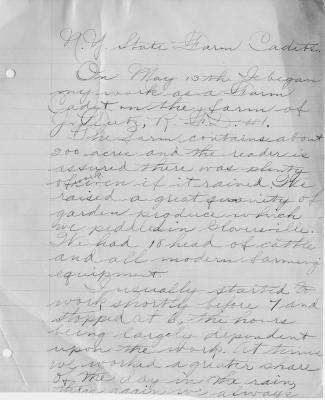 N.Y. State Farm Cadets.
On May 13th I began
my work as a Farm
Cadet on the farm of
R. F.D. #1.
The farm contains about
200 acre and the reader is
assured there was plenty
of work even if it rained. He
raised a great quanity of
garden produce which
we peddled in Gloversville.
He had 18 head of cattle
and all modern farming
equipment.
I usually started to
work shortly before 7 and
stopped at 6, the hours
being largely dependent
upon the work. At times
we worked a greater share
of the day in the rain,
then again we always